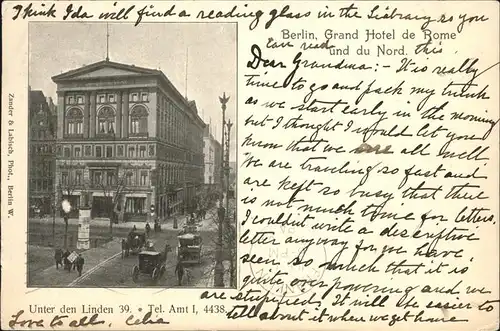 I think Ida will find a reading glass in the Library so you
can read this.
Berlin, Grand Hotel de Rome
und du Nord.
Dear Grandma:- It is really
time to go and pack my trunk
as we start early in the morning
but I thought I would let you
know that we are all well.
We are traveling so fast and
are kept so busy that there
is not much time for letters.
I couldn't write a descriptive
letter anyway for we have
seen so much that it is
quite over powering and we
are stupified. It will be easier to
tell about it when we get home
Love to all, Celia
Zander & Labisch, Phot., Berlin W.
Unter den Linden 39. * Tel. Amt I, 4438.